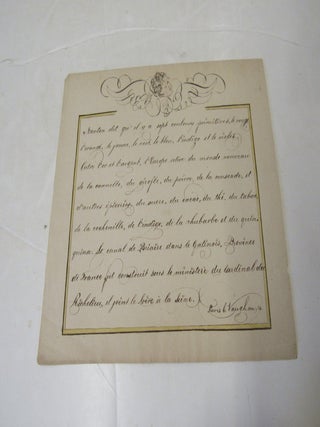 Newton dit qu'il y a sept couleurs primitives, le rouge
l'orangé, le jaune, le vert, le bleu, l'indigo et le violet.
Outre l'or et l'argent, l'Europe retire du nouveau
de la cannelle, du girofle, du poivre, de la muscade, et
d'autres épiceries, du sucre, du cacao, du thé, du tabac,
de la cochenille, de l'indigo, de la rhubarbe et du quin-
quina. Le canal de Briaire dans le Gatinois, Province
de France fut construit sous le ministère du Cardinal de
Richelieu, il joint la Loire à la Seine.
Vaughan